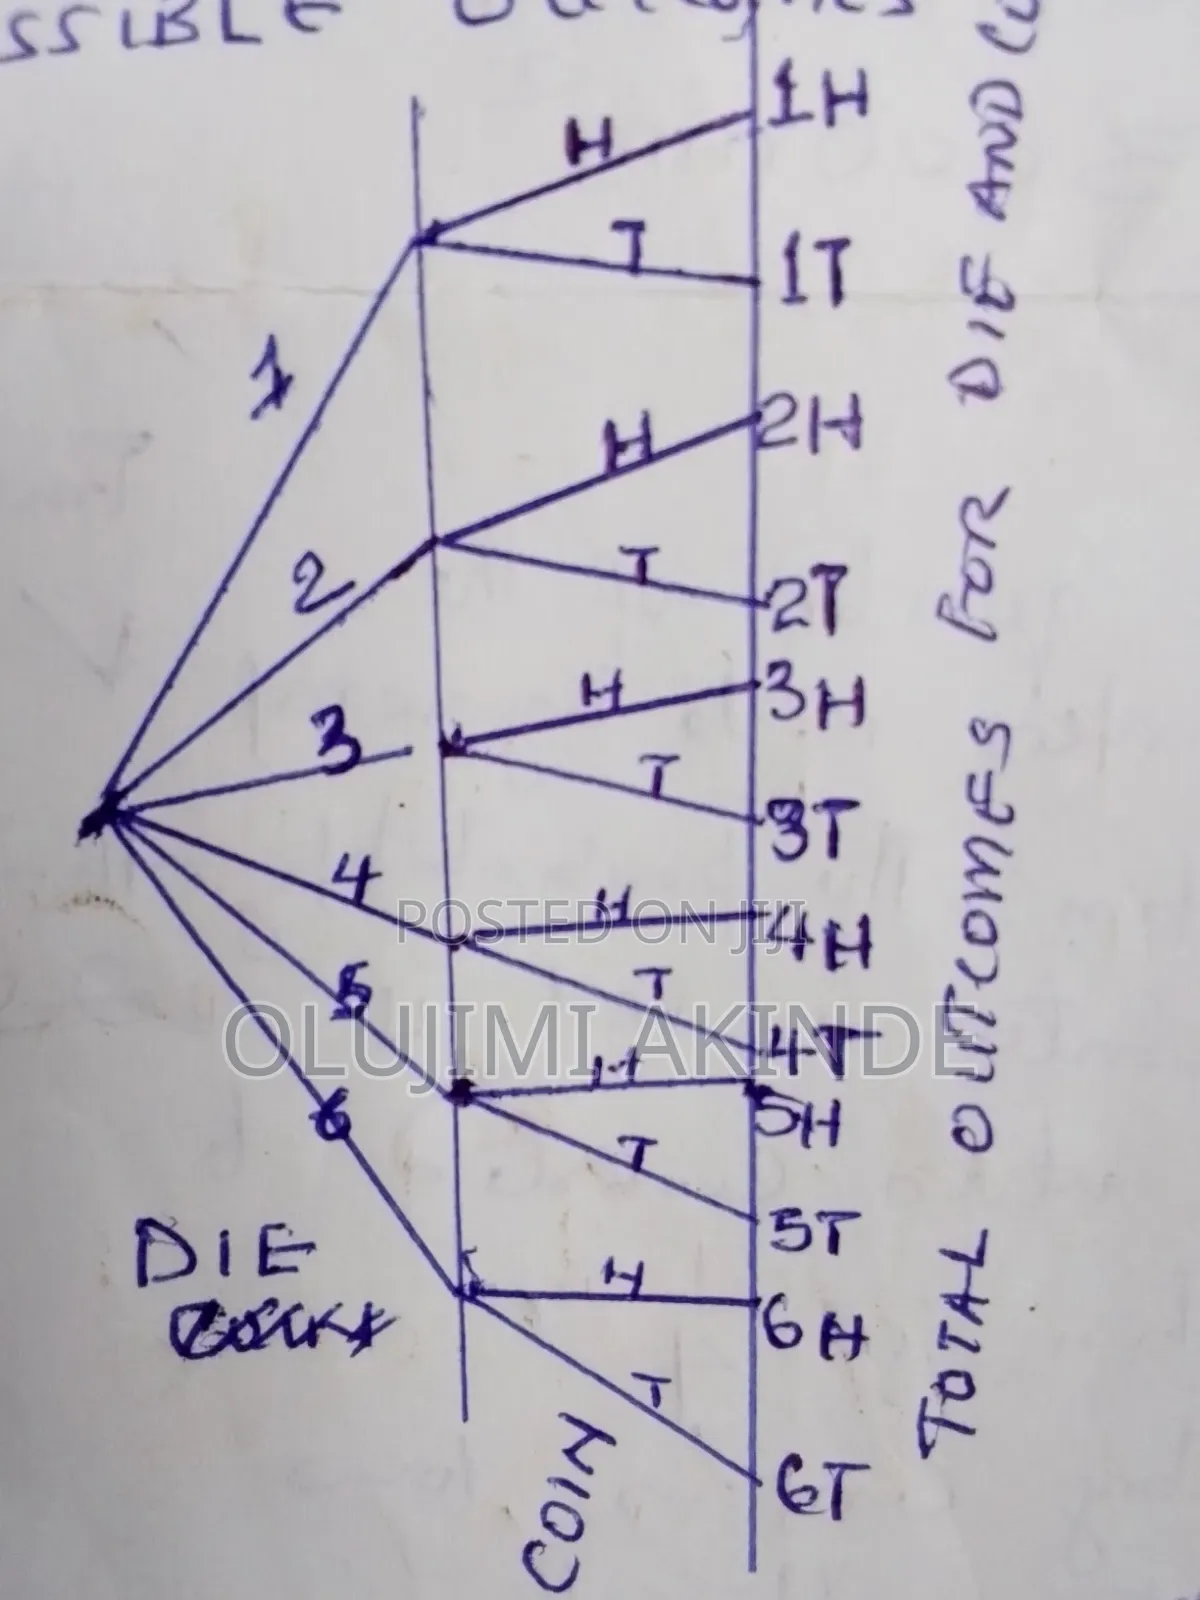 SSIBLE
1
2
3
4
5
6
H
T
H
T
H
T
H
T
H
T
H
T
1H
1T
2H
2T
3H
3T
4H
4T
5H
5T
6H
6T
DIE
COIN
TOTAL OUTCOMES FOR DIE AND
POSTED ON JIJI
OLUJIMI AKINDE